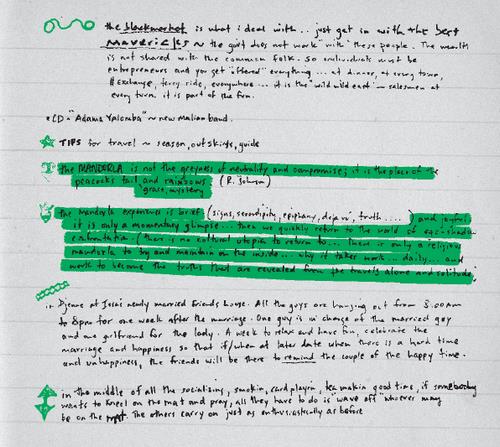 the blackmarket is what i deal with.. just get in with the best
mavericks ~ the gov't does not work "with" these people. The wealth
is not shared with the common folk. So individuals must be
entrepreneurs and you get "offered" everything... at dinner, at every town,
# exchange, ferry ride, everywhere... it is the "wild wild east" ~ salesmen at
every turn. it is part of the fun.
CD = "Adama Yalomba" ~ new Malian band.
TIPS for travel ~ season, outskirts, guide
the MANDORLA is not the greyness of neutrality and compromise; it is the place of the
peacocks tail and rainbows (R. Johnson)
grace, mystery
the mandorla experience is brief (signs, serendipity, epiphany, deja vu, truth ....) and joyful
it is only a momentary glimpse... then we quickly return to the world of ego-shadow
confrontation (there is no cultural utopia to return to... There is only a religious
mandorla to try and maintain on the inside... why it takes work... daily... and
work to become the truths that are revealed from the travels alone and solitude;
Djenne at Josai newly married friends house. All the guys are hanging out from 8:00am
to 8pm for one week after the marriage. One guy is in charge of the married guy
and one girlfriend for the lady. A week to relax and have fun, celebrate the
marriage and happiness so that if/when at later date when there is a hard time
and unhappiness, the friends will be there to remind the couple of the happy time.
in the middle of all the socializing, smokin, card playin, tea makin good time, if somebody
wants to kneel on the mat and pray, all they have to do is "wave off" whoever may
be on the mat. The others carry on just as enthusiastically as before